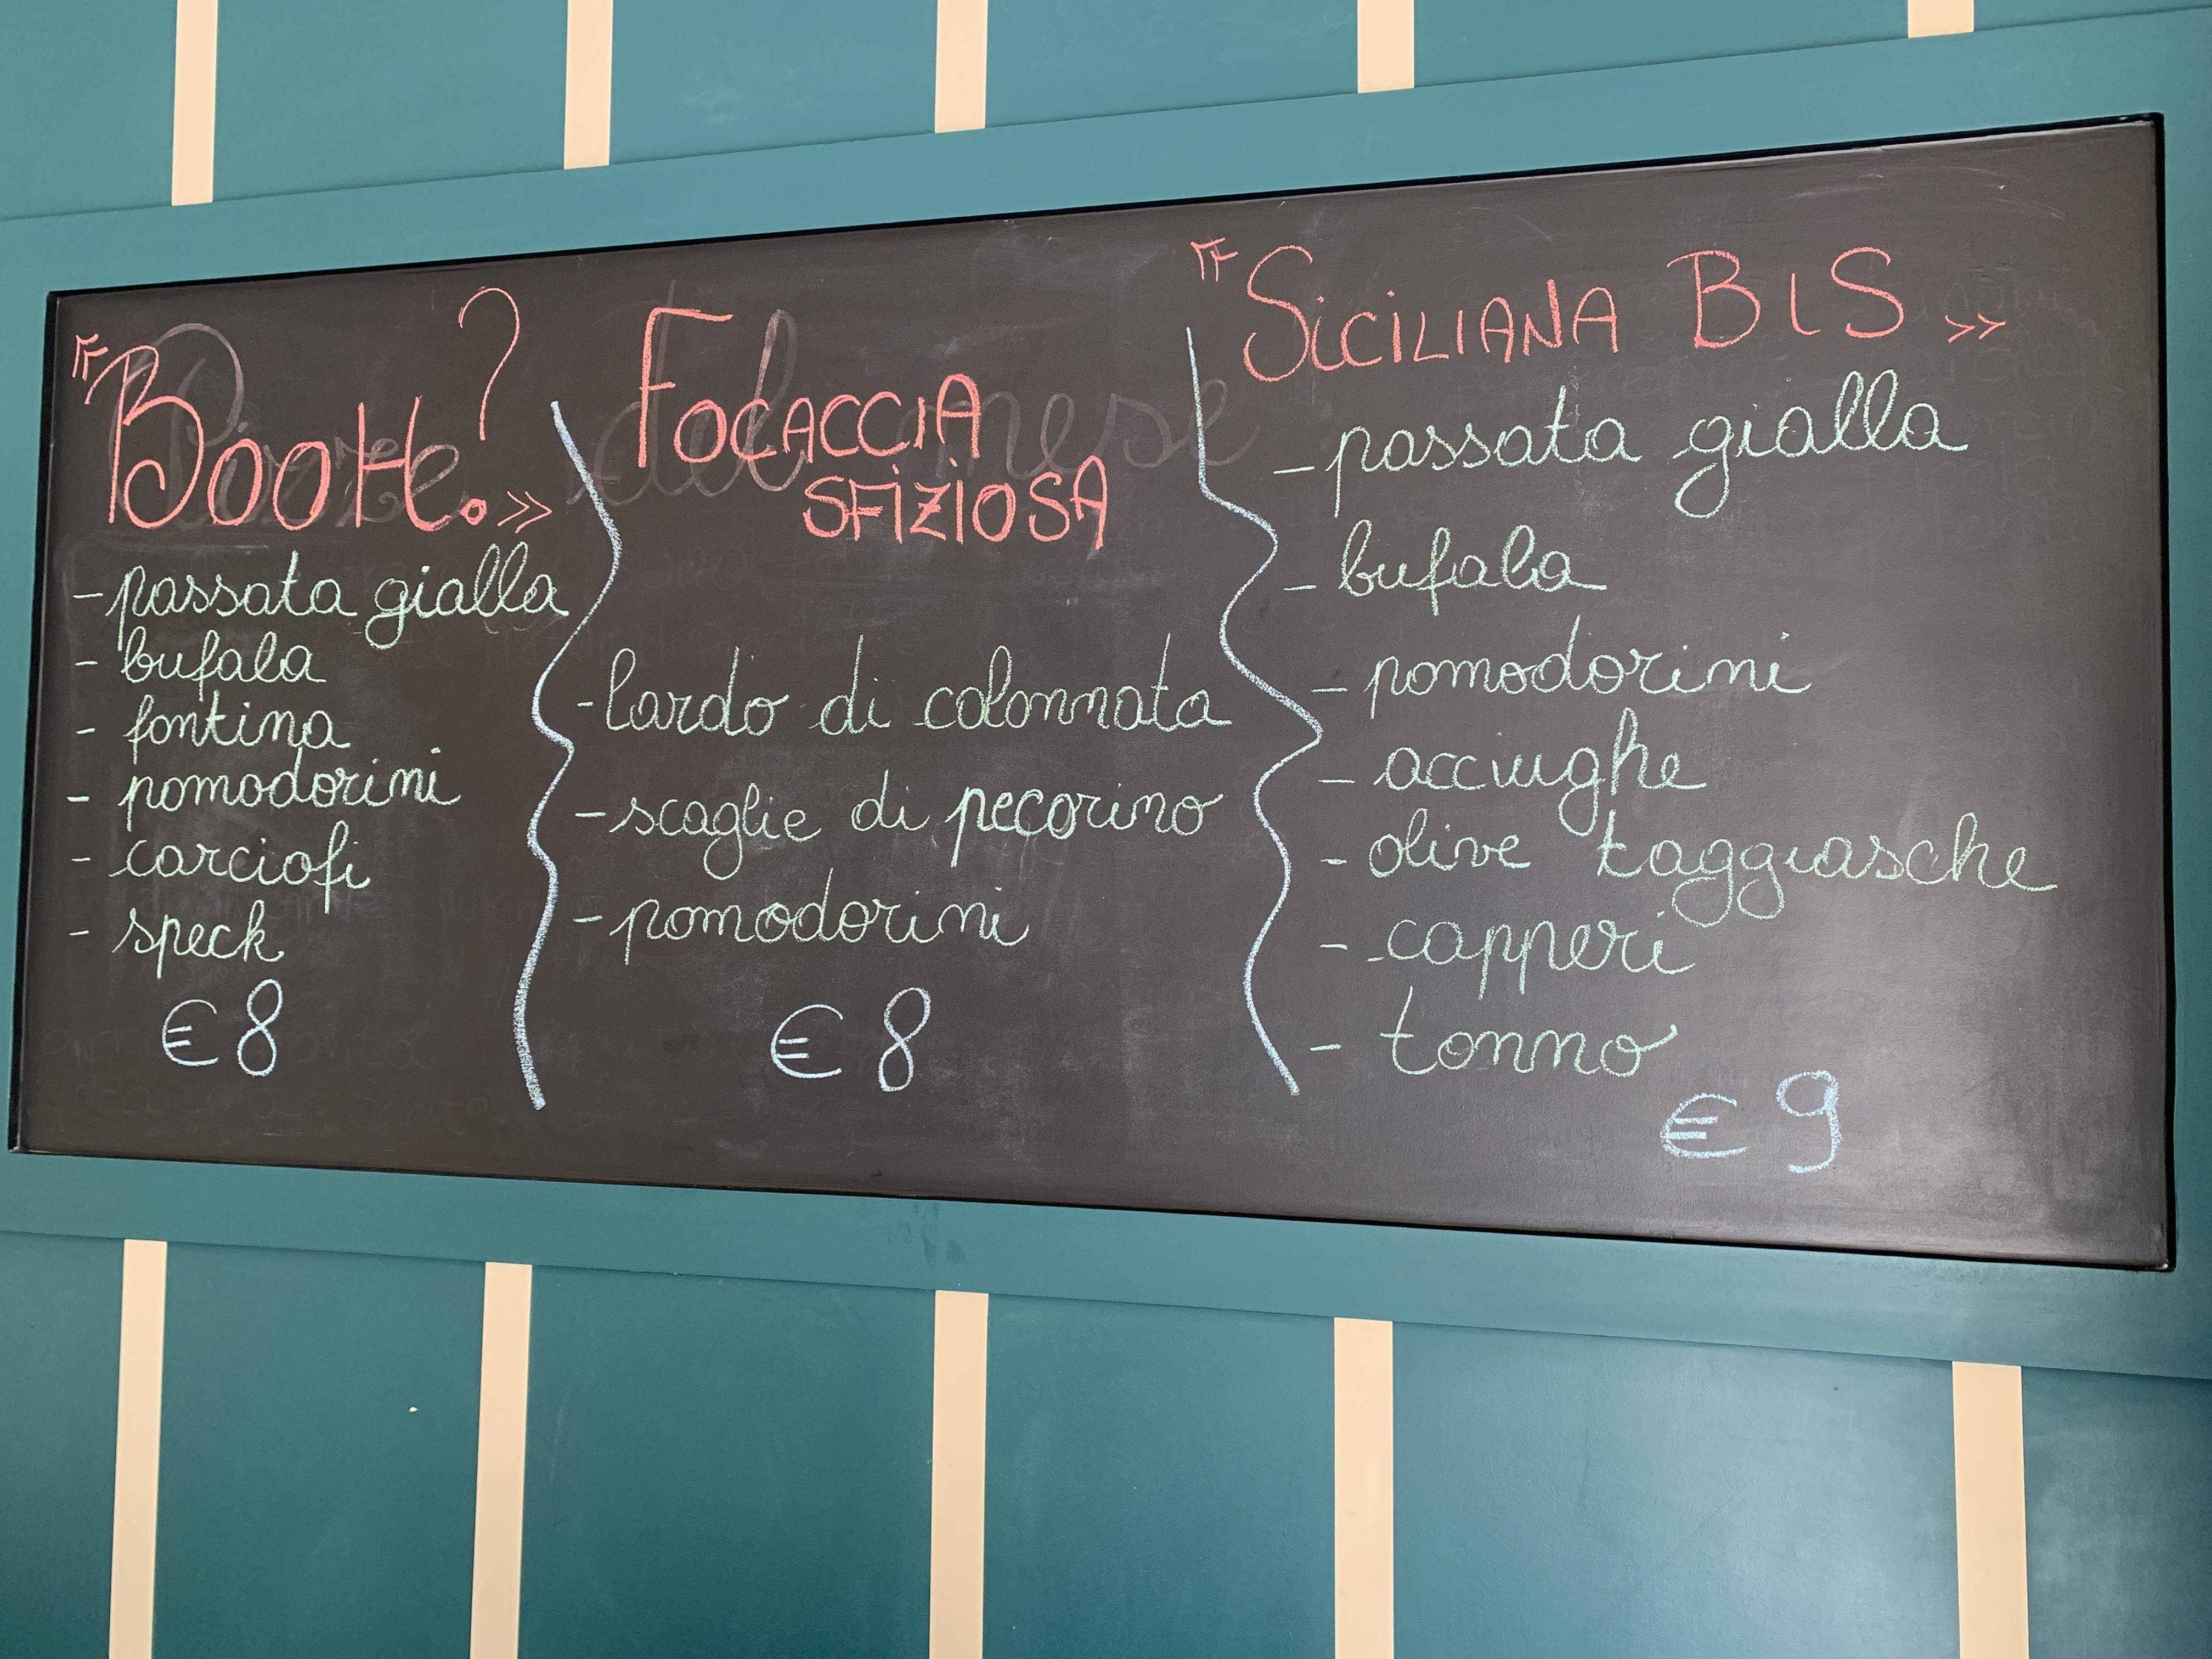 "BOOH. ?"
- passata gialla
- bufala
- fontina
- pomodorini
- carciofi
- speck
€ 8
FOCACCIA
SFIZIOSA
- lardo di colonnata
- scaglie di pecorino
- pomodorini
€ 8
"SICILIANA BIS"
- passata gialla
- bufala
- pomodorini
- acciughe
- olive taggiasche
- capperi
- tonno
€ 9